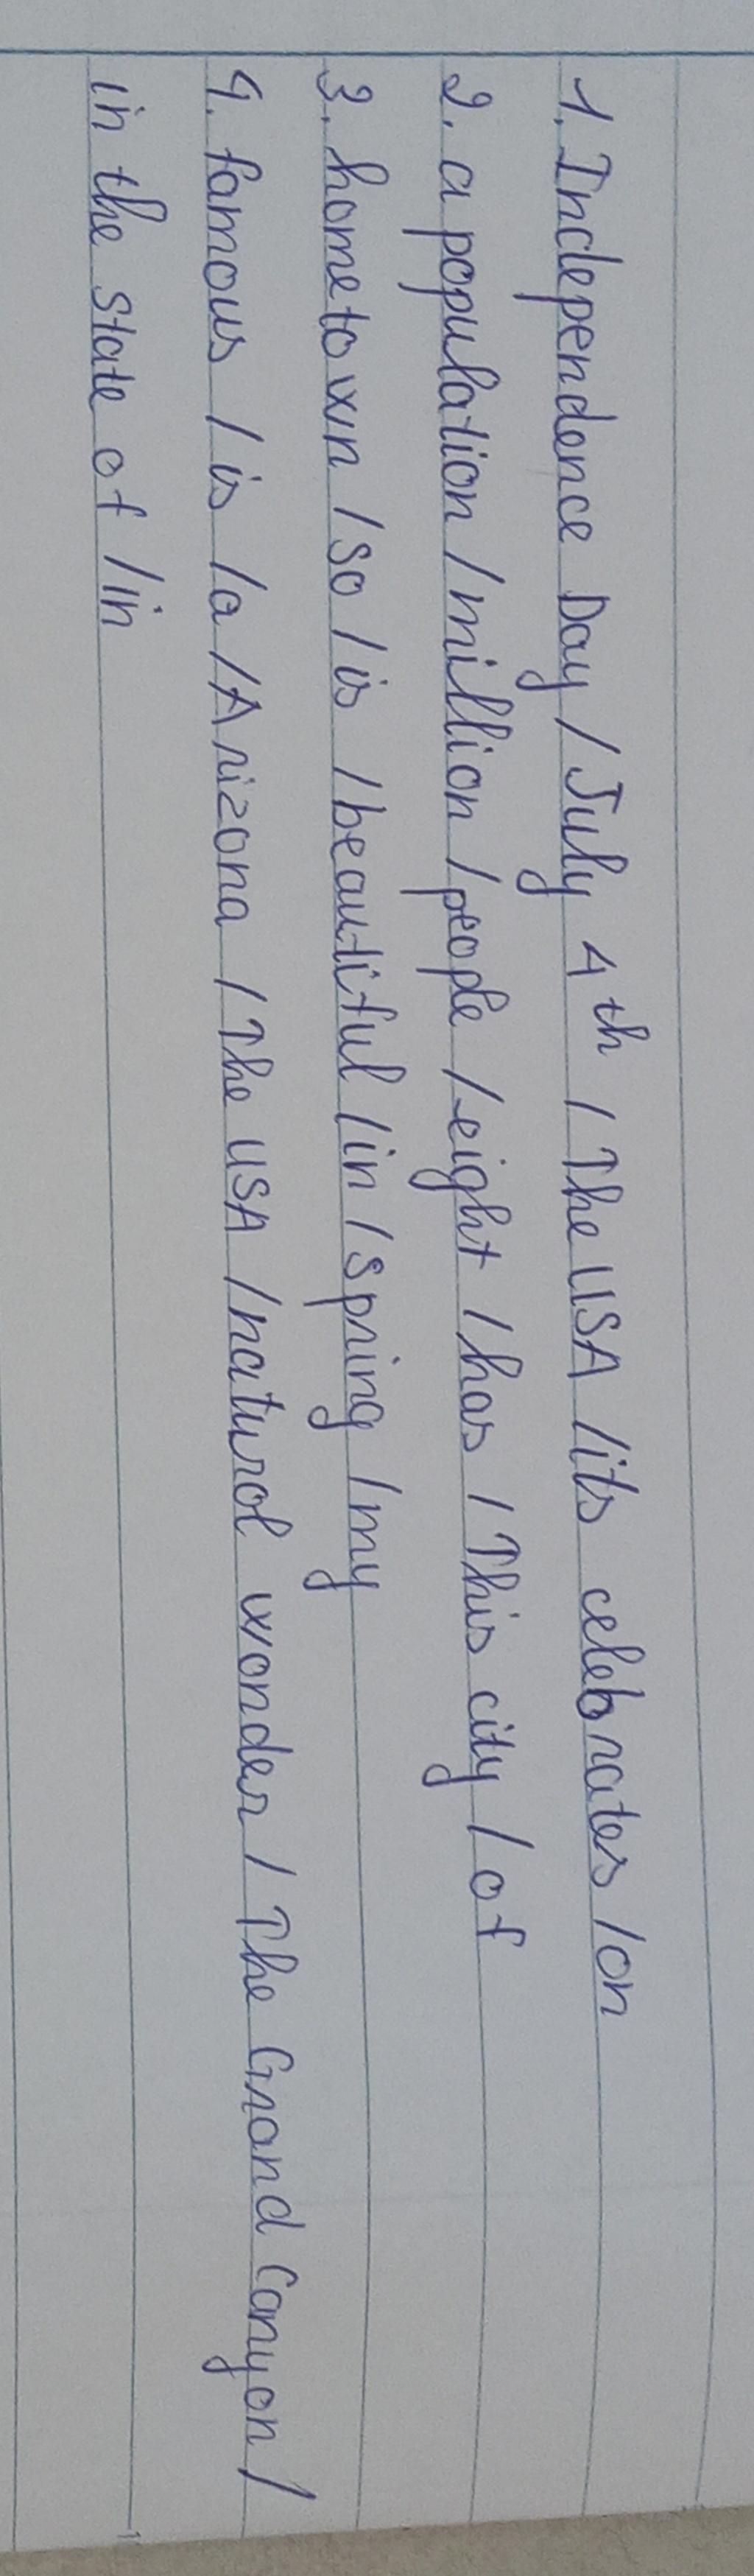 1. Independence Day / July 4th / The USA / its celebrates / on
2. a population / million / people / eight / has / This city / of
3. hometown / so / is / beautiful / in / spring / my
4. famous / is / a / Arizona / The USA / natural wonder / The Grand Canyon /
in the state of / in